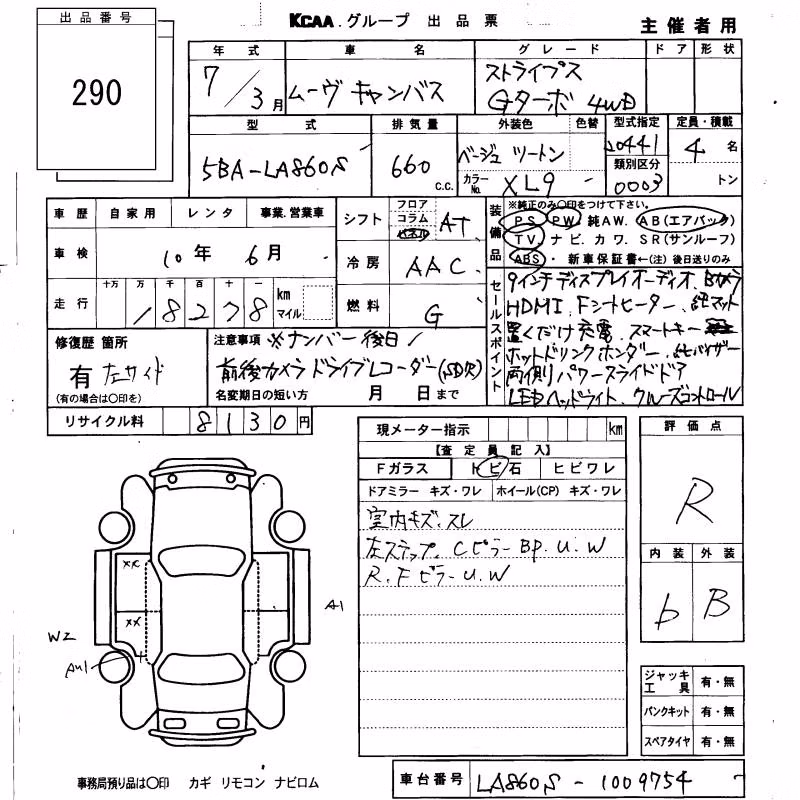 出品番号
290
KCAA.グループ 出品票
主催者用
年式 車名 グレード ドア 形状
7/3月 ムーヴ キャンバス ストライプス
Gターボ 4WD
型式 排気量 外装色 色替 型式指定 定員・積載
5BA-LA860S 660 c.c. ベージュ ツートン 20441 4名
カラーNo. XL9 類別区分 0003 トン
車歴 自家用 レンタ 事業.営業車
車検 10年 6月
走行 十万 万 千 百 十 一 km マイル
18278
シフト フロア コラム パネル AT
冷房 AAC
燃料 G
装備品
※純正のみ○印をつけて下さい。
PS PW 純AW. AB(エアバック)
TV. ナビ カワ. SR(サンルーフ)
ABS ・ 新車保証書←(注) 後日送りのみ
セールスポイント
9インチディスプレイオーディオ、Bカメラ
HDMI、Fシートヒーター、純マット
置くだけ充電 スマートキー
ホットドリンクホルダー、純バイザー
両側パワースライドドア
LEDヘッドライト、クルーズコントロール
修復歴 箇所
有 左サイド
(有の場合は○印を)
注意事項 ※ナンバー後日
前後カメラドライブレコーダー(SD欠)
名変期日の短い方 月 日まで
リサイクル料 8130円
現メーター指示 km
【査定員記入】
Fガラス トビ石 ヒビワレ
ドアミラー キズ・ワレ ホイール(CP) キズ・ワレ
室内キズ、スレ
左ステップ、Cピラー BP.U.W
R.Fピラー U.W
評価点
R
内装 外装
b B
XX
XX
A1
W2
AU1
ジャッキ工具 有・無
パンクキット 有・無
スペアタイヤ 有・無
事務局預り品は○印 カギ リモコン ナビロム
車台番号 LA860S - 1009754